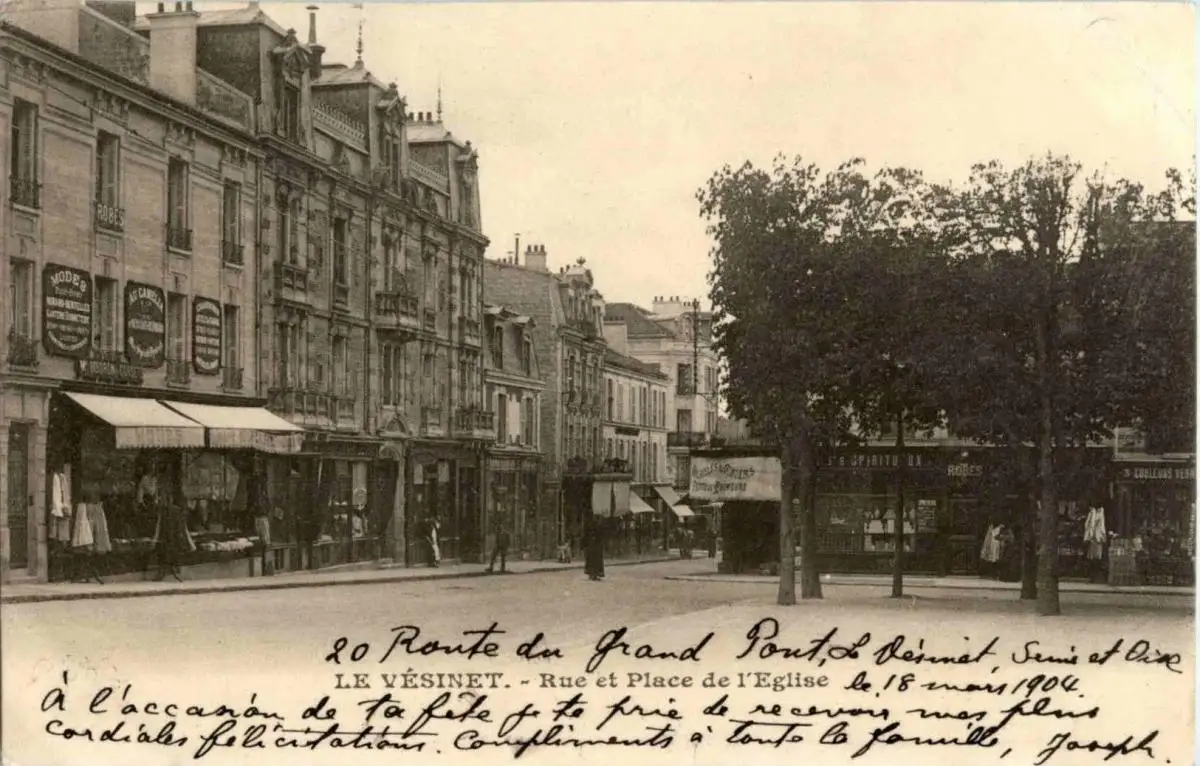 ROBES
MODES
AU CAMÉLIA
S & SPIRITUEUX
ROBES
& COULEURS VERN
20 Route du grand Pont, Le Vésinet, Seine et Oise
LE VÉSINET. - Rue et Place de l'Eglise
le 18 mars 1904.
À l'occasion de ta fête je te prie de recevoir mes plus
cordiales félicitations. Compliments à toute la famille, Joseph.